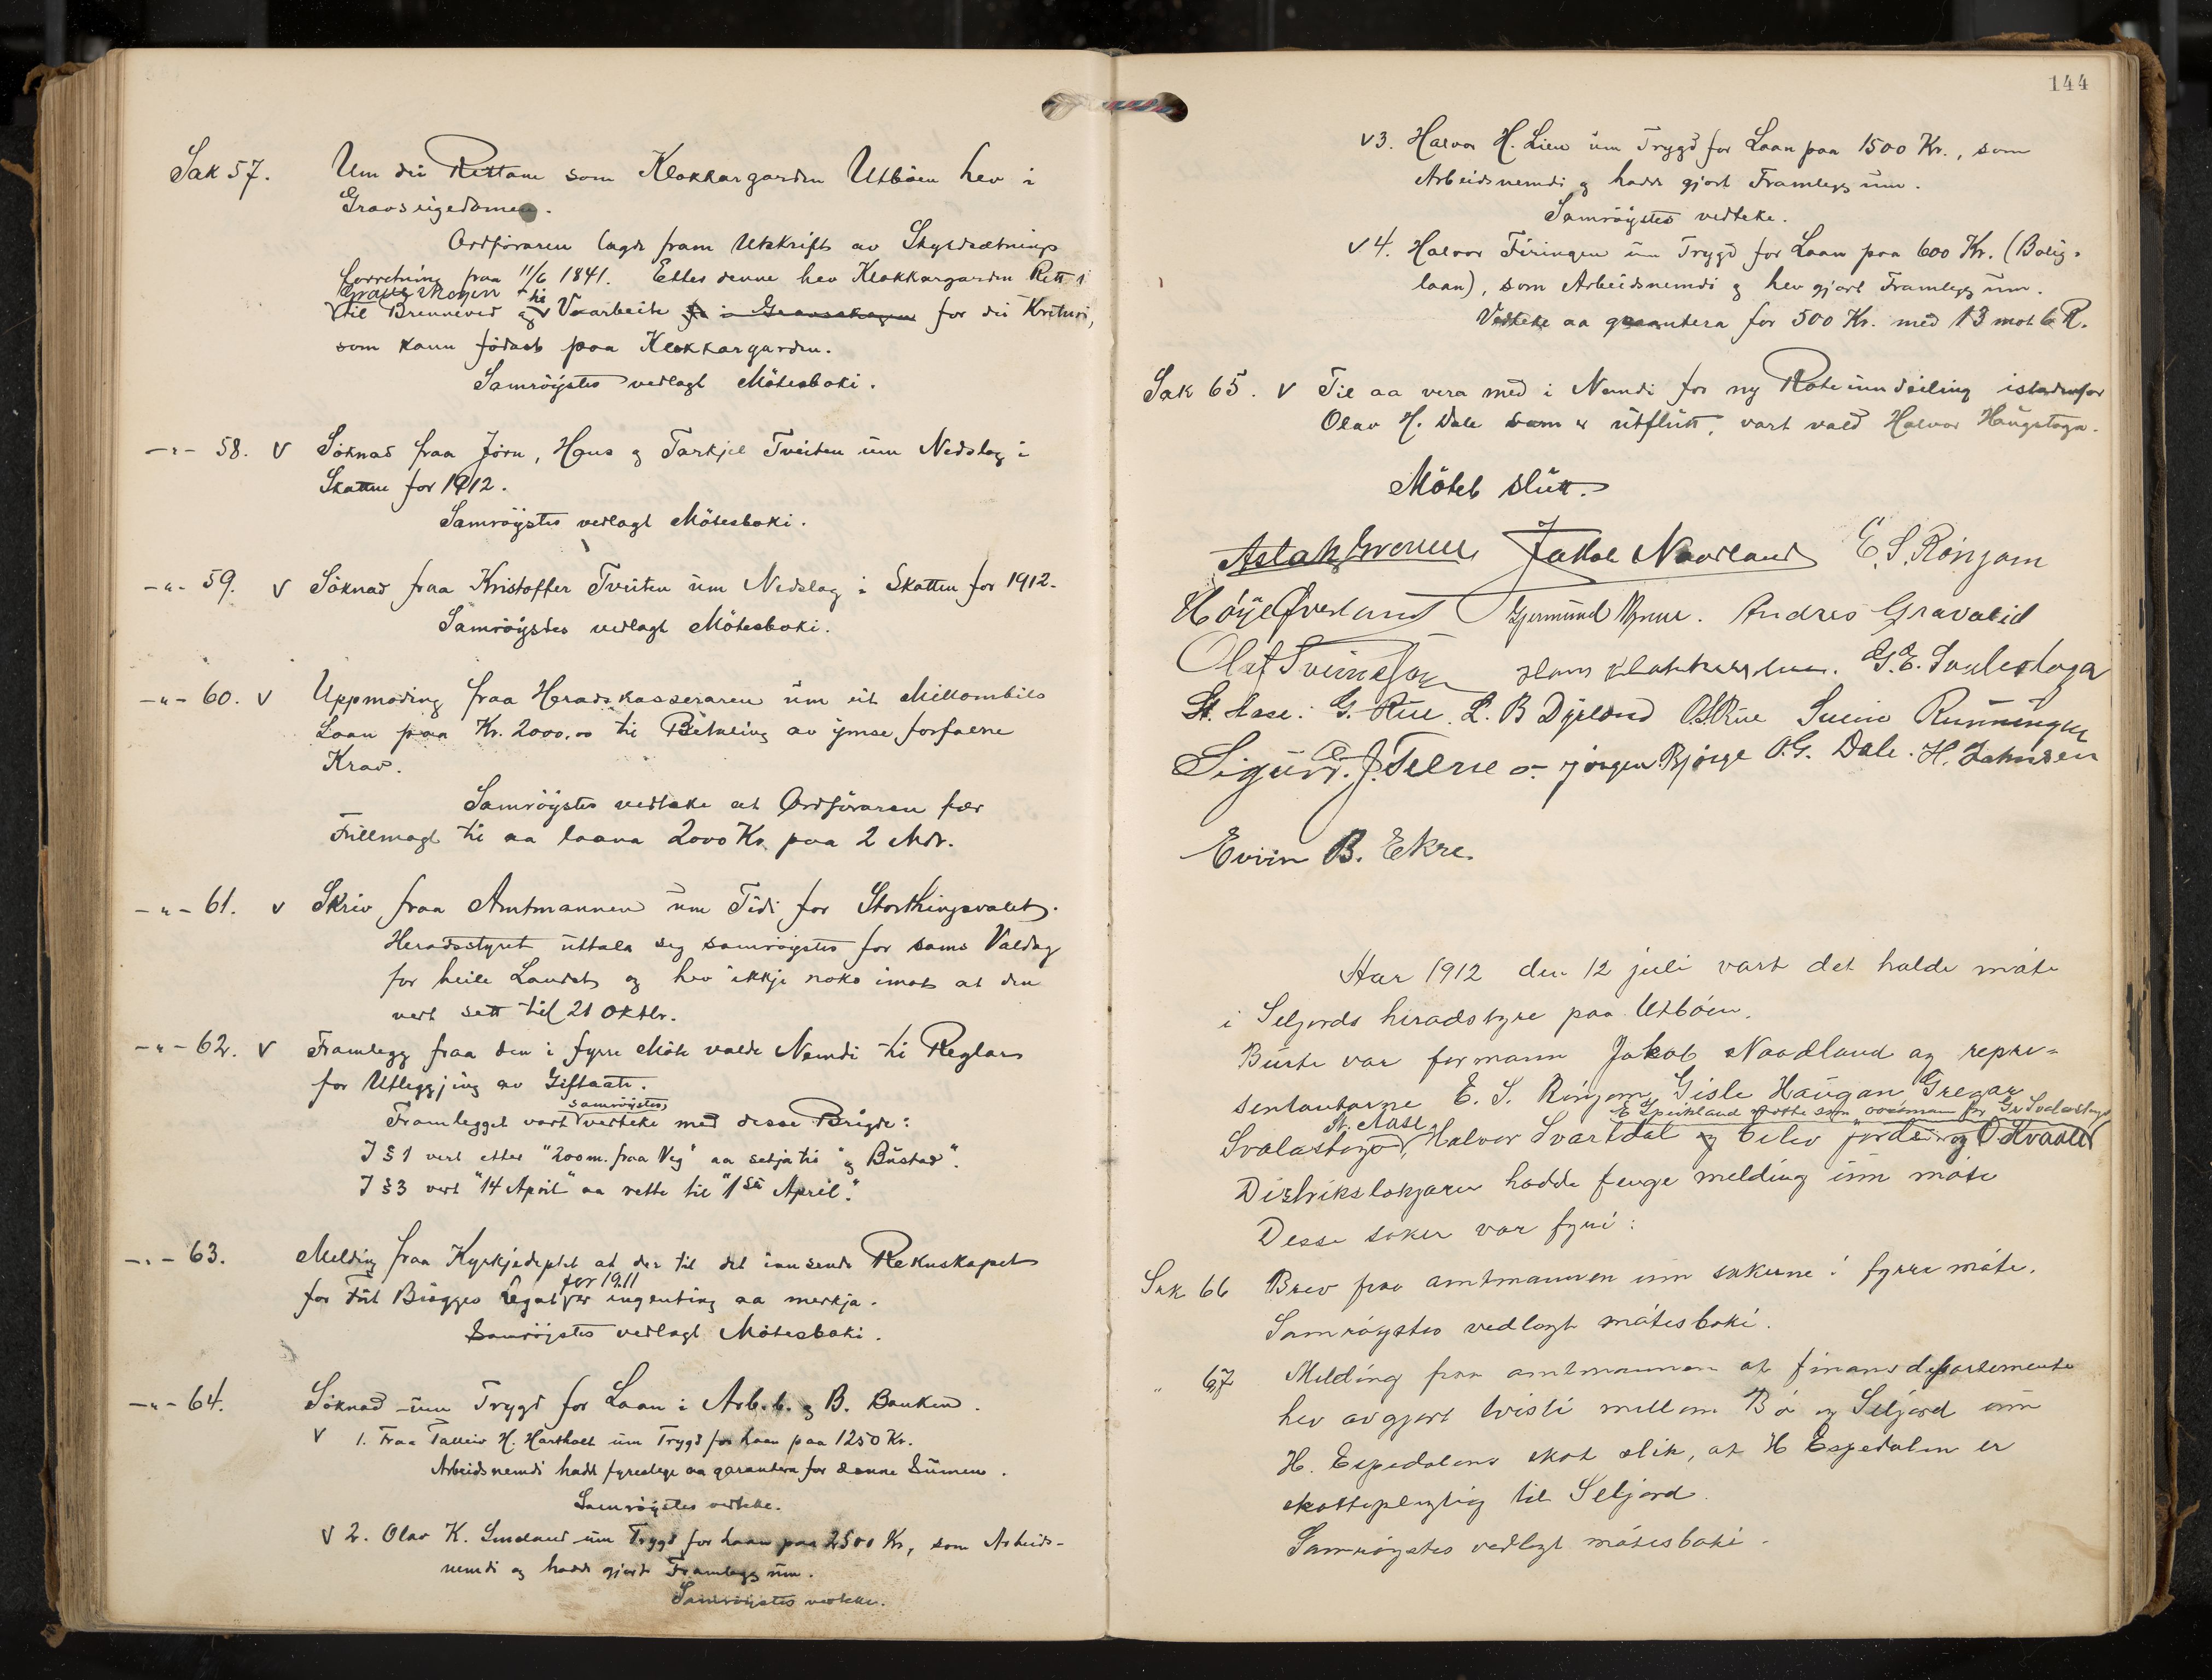 Sak 57. Um dei Rettane som Klokkargarden Utböen hev i
Gravseigedomen.
Ordföraren lagde fram Utskrift av Skyldsætnings
forretning fraa 11/6 1841. Etter denne hev Klokkargarden Rett i
Gravsskogen til
til Brenneved og Vaarbeite for dei Krituri,
som kann födast paa Klokkargarden.
Samröystes vedlagt Mötesboki.
-"- 58. V Söknad fraa Jörn, Hans og Tarkjel Tveiten um Nedslag i
Skatten for 1912.
Samröystes vedlagt Mötesboki.
-"- 59. V Söknad fraa Kristoffer Tveiten um Nedslag i Skatten for 1912.
Samröystes vedlagt Mötesboki.
-"- 60. V Uppmoding fraa Heradskasseraren um eit Millombils
Laan paa Kr. 2000.00 til Betaling av ymse forfalne
Krav.
Samröystes vedteke at Ordföraren fær
Fullmagt til aa laana 2000 Kr. paa 2 Mdr.
-"- 61. V Skriv fraa Amtmannen um Tidi for Storthingsvalet.
Heradsstyret uttala seg samröystes for sams Valdag
for heile Landet og hev ikkje noko imot at den
vert sett til 21 oktbr.
-"- 62. V Framlegg fraa den i fyrre Möte valde Nemdi til Reglar
for Utleggjing av Giftaate.
samröystes
Framlegget vart vedteke med desse Brigde:
I § 1 vert etter "200 m. fraa Veg" aa setja til "og Bustad".
I § 3 vert "14 April" aa rette til "1ste April".
-"- 63. Melding fraa Kyrkjedeptet at der til det innsende Rekneskapet
for 1911
for Föt Bügges Legat er ingenting aa merkja.
Samröystes vedlagt Mötesboki.
-"- 64. Söknad um Trygd for Laan i Arb.b. og B. Banken.
V 1. Fraa Talleiv H. Hartholt um Trygd for Laan paa 1250 Kr.
Arbeidsnemdi hadde fyreslege aa garantera for denne Sumen.
Samröystes vedteke.
V 2. Olav K. Smeland um Trygd for Laan paa 2500 Kr, som Arbeids-
nemdi og hadde gjort Framlegg um.
Samröystes vedteke.
144
V 3. Halvor H. Lien um Trygd for Laan paa 1500 Kr., som
Arbeidsnemdi og hadde gjort Framlegg um.
Samröystes vedteke.
V 4. Halvor Firingen um Trygd for Laan paa 600 Kr. (Bolig-
laan), som Arbeidsnemdi og hev gjort Framlegg um.
Vedteke aa garantera for 500 Kr. med 13 mot 6 R.
Sak 65. V Til aa vera med i Nemdi for ny Roteinndeiling istadenfor
Olav H. Dale som er utflutt, vart vald Halvor Haugstoga.
Mötet slutt.
Aslak Grønen Jakob Naadland E. S. Rönjom
Høye Øverland Gjermund Mæne. Andres Gravalid
Olaf Sveinsson Hans Klokkars G. E. Svalestoga
St. Aase. G. Rue. L. B Djelond O. Rue Svein Runningen
Sigurd J. Telnes Jörgen Bjørge O. G. Dale. H. Johnsen
Eivin B. Ekre.
Aar 1912 den 12 juli vart det halde möte
i Seljords heradstyre paa Utböen.
Burte var formann Jakob Naadland og repre-
sentantarne E. S. Rönjom, Gisle Haugan, Gregar
E Speikland møtte som varamann for Gr Svalastoga
St. Aase
Svalastoga, Halvor Svartdal og Eilev Jorde og O Kvaale
Distrikslækjaren hadde fenge melding um möte
Desse saker var fyri:
Sak 66 Brev fraa amtmannen um sakerne i fyrre möte.
Samröystes vedlagt mötesboki.
" 67 Melding fraa amtmannen at finansdepartemente
hev avgjort tvisti millom Bö og Seljord um
H. Espedalens skat slik, at H Espedalen er
skattepligtig til Seljord.
Samröystes vedlagt mötesboki.